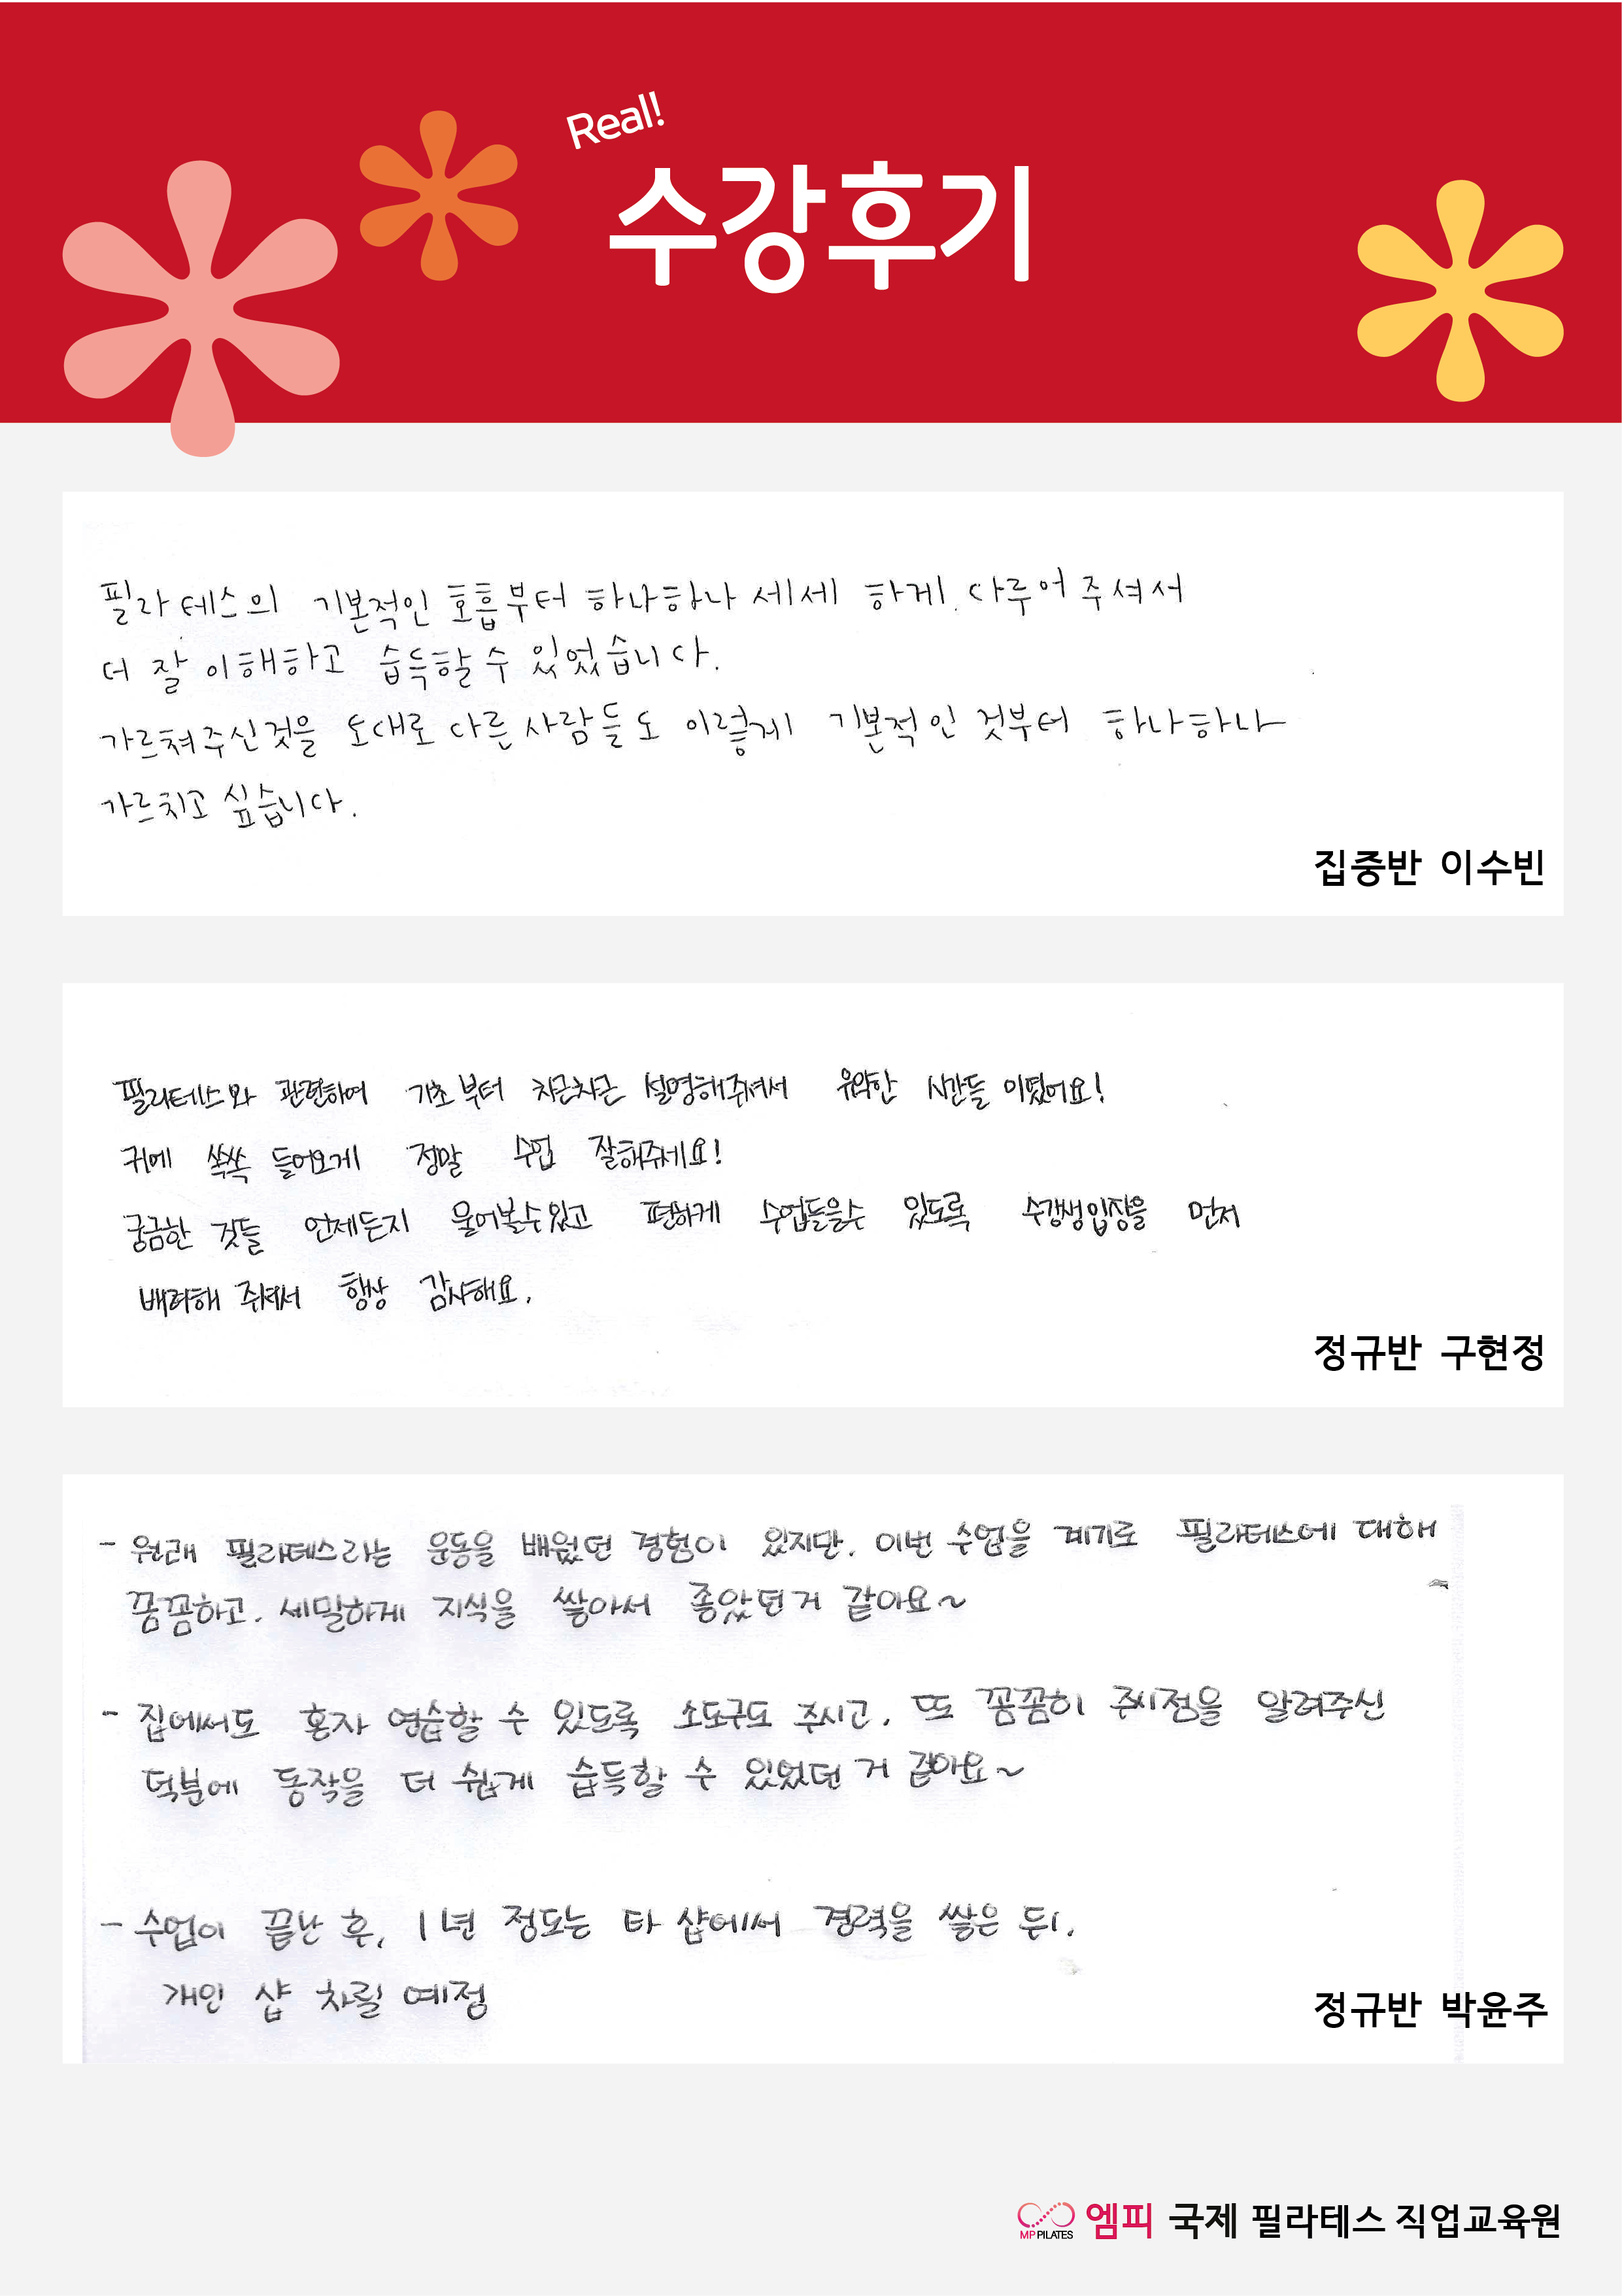 Real!
수강후기
필라테스의 기본적인 호흡부터 하나하나 세세 하게 다루어 주셔서
더 잘 이해하고 습득할 수 있었습니다.
가르쳐주신것을 토대로 다른 사람들도 이렇게 기본적인 것부터 하나하나
가르치고 싶습니다.
집중반 이수빈
필라테스와 관련하여 기초부터 차근차근 설명해주셔서 유익한 시간들이였어요!
귀에 쏙쏙 들어오게 정말 수업 잘해주세요!
궁금한 것들 언제든지 물어볼수있고 편하게 수업들을수 있도록 수강생입장을 먼저
배려해 주셔서 항상 감사해요.
정규반 구현정
- 원래 필라테스라는 운동을 배웠던 경험이 있지만, 이번 수업을 계기로 필라테스에 대해
꼼꼼하고, 세밀하게 지식을 쌓아서 좋았던거 같아요~
- 집에서도 혼자 연습할 수 있도록 소도구도 주시고, 또 꼼꼼히 주시점을 알려주신
덕분에 동작을 더 쉽게 습득할 수 있었던 거 같아요~
- 수업이 끝난 후, 1년 정도는 타 샵에서 경력을 쌓은 뒤,
개인 샵 차릴 예정
정규반 박윤주
MP PILATES 엠피 국제 필라테스 직업교육원